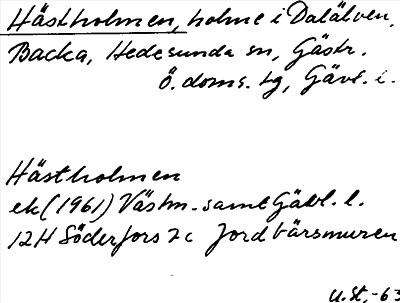 Hästholmen, holme i Dalälven,
Backa, Hedesunda sn, Gästr.
Ö. doms. tg, Gävl. l.
Hästholmen
ek (1961) Västm. samt Gävl. l.
12H Söderfors 7c Jordbärsmuren
U.St.-63